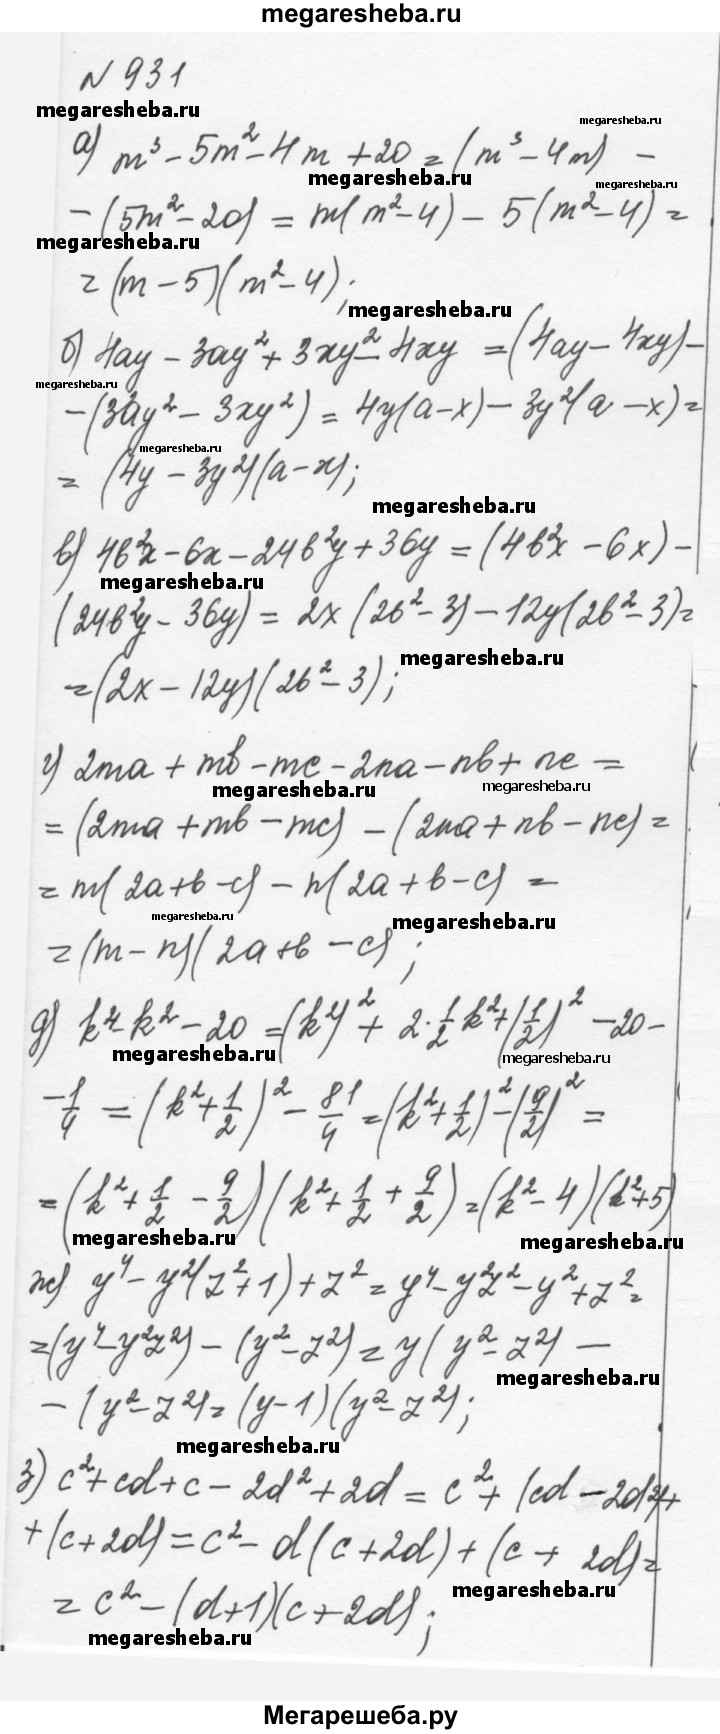 megaresheba.ru
N 931
megaresheba.ru
megaresheba.ru
а) m³ - 5m² - 4m + 20 = (m³ - 4m) -
megaresheba.ru
megaresheba.ru
- (5m² - 20) = m(m² - 4) - 5(m² - 4) =
megaresheba.ru
= (m - 5)(m² - 4);
megaresheba.ru
б) 4ay - 3ay² + 3xy² - 4xy = (4ay - 4xy) -
megaresheba.ru
- (3ay² - 3xy²) = 4y(a - x) - 3y²(a - x) =
megaresheba.ru
= (4y - 3y²)(a - x);
megaresheba.ru
в) 4b²x - 6x - 24b²y + 36y = (4b²x - 6x) -
megaresheba.ru
(24b²y - 36y) = 2x(2b² - 3) - 12y(2b² - 3) =
megaresheba.ru
= (2x - 12y)(2b² - 3);
г) 2ma + mb - mc - 2na - nb + nc =
megaresheba.ru
megaresheba.ru
= (2ma + mb - mc) - (2na + nb - nc) =
= m(2a + b - c) - n(2a + b - c) =
megaresheba.ru
megaresheba.ru
= (m - n)(2a + b - c);
д) k⁴ - k² - 20 = (k²)² + 2·1/2 k² + (1/2)² - 20 -
megaresheba.ru
megaresheba.ru
- 1/4 = (k² + 1/2)² - 81/4 = (k² + 1/2)² - (9/2)² =
= (k² + 1/2 - 9/2)(k² + 1/2 + 9/2) = (k² - 4)(k² + 5)
megaresheba.ru
megaresheba.ru
ж) y⁴ - y²(z² + 1) + z² = y⁴ - y²z² - y² + z² =
= (y⁴ - y²z²) - (y² - z²) = y(y² - z²) -
megaresheba.ru
- (y² - z²) = (y - 1)(y² - z²);
megaresheba.ru
з) c² + cd + c - 2d² + 2d = c² + (cd - 2d²) +
+ (c + 2d) = c² - d(c + 2d) + (c + 2d) =
megaresheba.ru
= c² - (d + 1)(c + 2d);
megaresheba.ru
Мегарешеба.ру